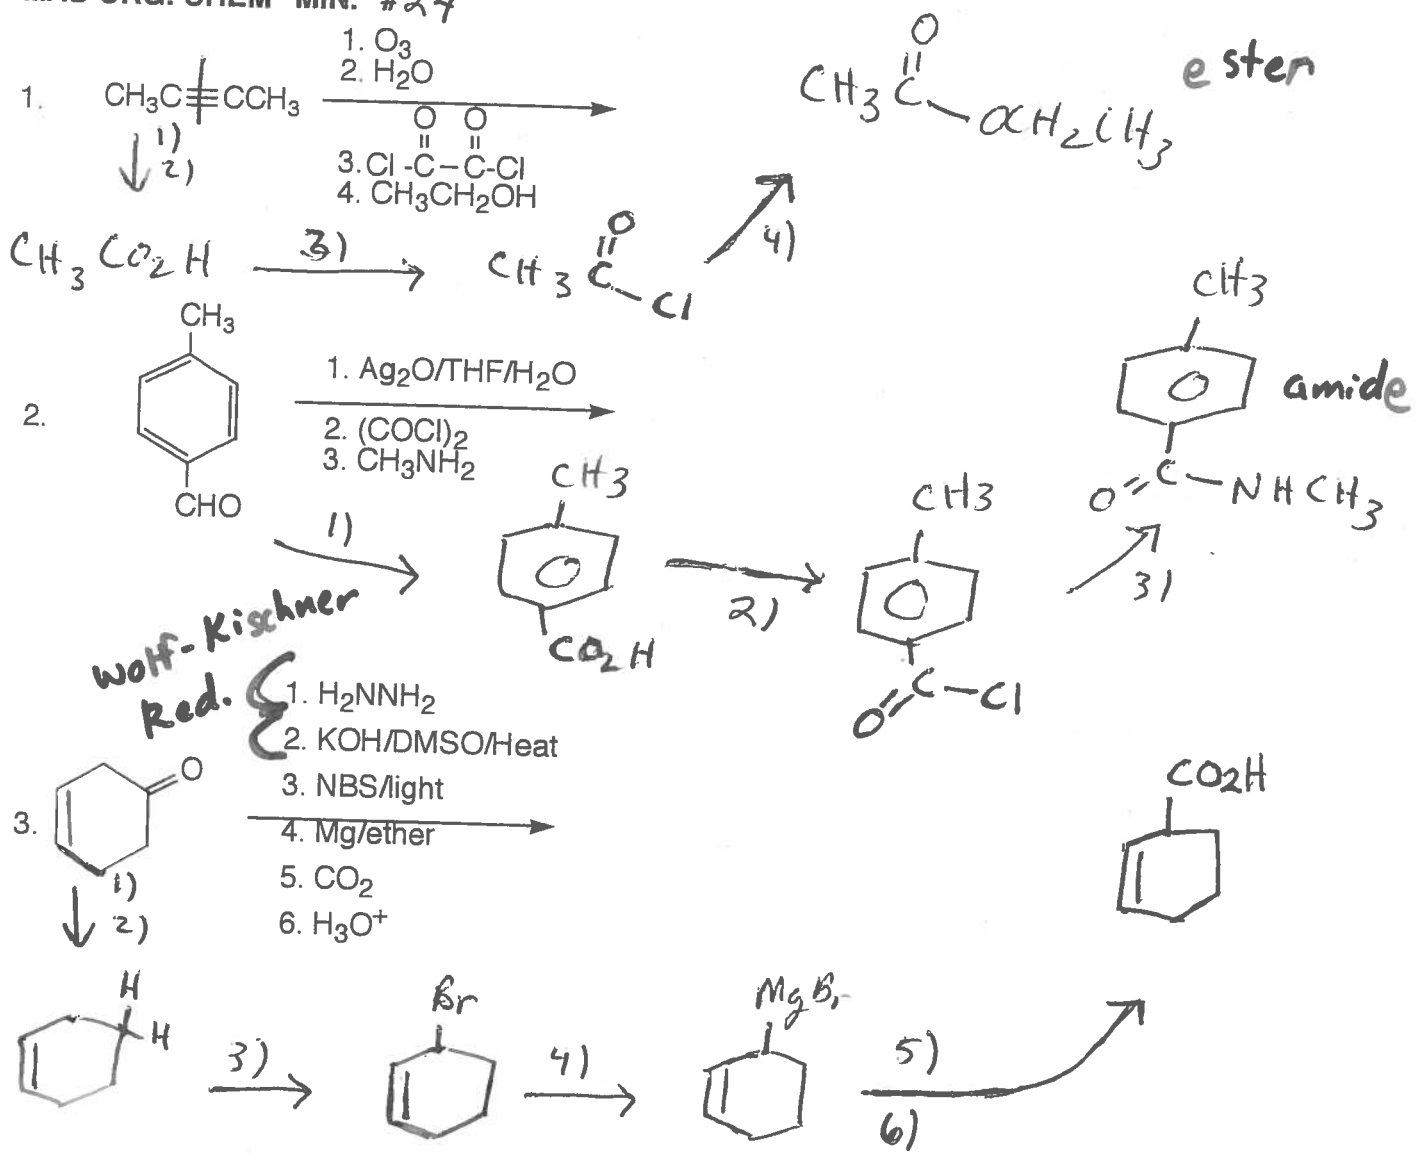 ORG. CHEM MIN. #24
1. CH₃C≡CCH₃
1. O₃
2. H₂O
3. Cl-C-C-Cl
O O
4. CH₃CH₂OH
1)
2)
CH₃CO₂H
3)
CH₃C
O
Cl
4)
O
CH₃C
OCH₂CH₃
ester
2.
CH₃
CHO
1. Ag₂O/THF/H₂O
2. (COCl)₂
3. CH₃NH₂
1)
CH3
CO₂H
2)
CH3
O=C-Cl
3)
CH3
O=C-NHCH₃
amide
Wolf-Kischner
Red.
3.
O
1. H₂NNH₂
2. KOH/DMSO/Heat
3. NBS/light
4. Mg/ether
5. CO₂
6. H₃O⁺
1)
2)
H
H
3)
Br
4)
MgBr
5)
6)
CO2H